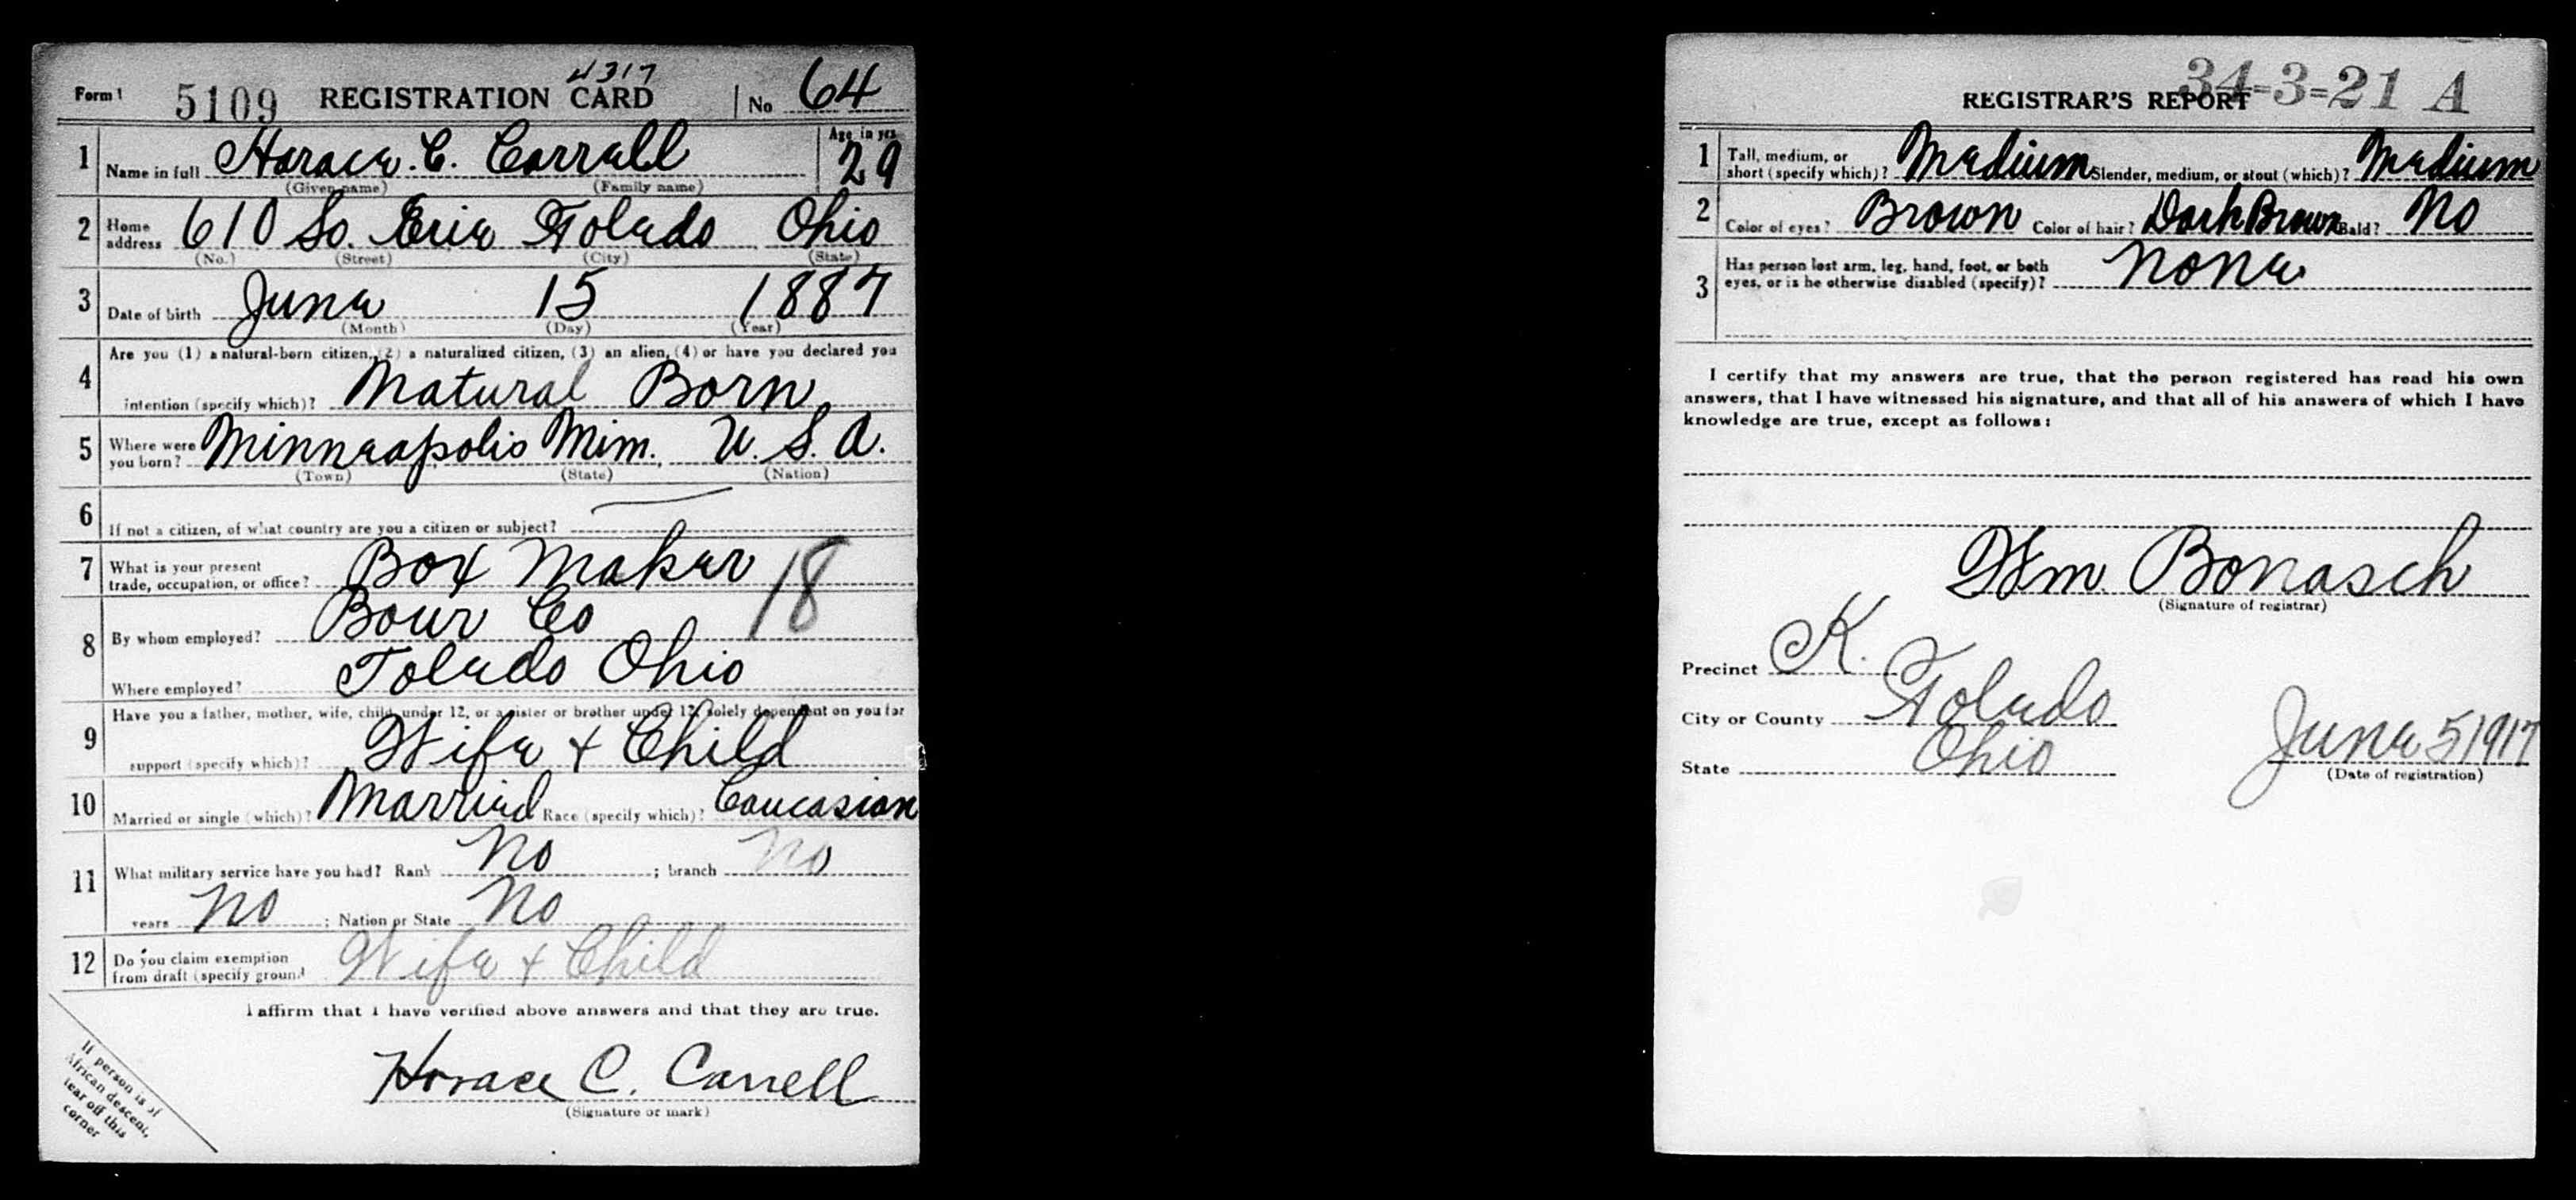 4317
Form 1 5109 REGISTRATION CARD No 64
1 Name in full Horace. C. Carrell Age in yrs 29
(Given name) (Family name)
2 Home address 610 So. Erie Toledo Ohio
(No.) (Street) (City) (State)
3 Date of birth June 15 1887
(Month) (Day) (Year)
4 Are you (1) a natural-born citizen, (2) a naturalized citizen, (3) an alien, (4) or have you declared you
intention (specify which)? Natural Born
5 Where were you born? Minneapolis Minn. U. S. A.
(Town) (State) (Nation)
6 If not a citizen, of what country are you a citizen or subject?
7 What is your present trade, occupation, or office? Box Maker 18
8 By whom employed? Bour Co
Where employed? Toledo Ohio
9 Have you a father, mother, wife, child under 12, or a sister or brother under 12, solely dependent on you for
support (specify which)? Wife + Child
10 Married or single (which)? Married Race (specify which)? Caucasian
11 What military service have you had? Rank No ; branch No
years No ; Nation or State No
12 Do you claim exemption from draft (specify ground Wife + Child
I affirm that I have verified above answers and that they are true.
Horace C. Carrell
(Signature or mark)
If person is of
African descent,
tear off this
corner
34-3-21 A
REGISTRAR'S REPORT
1 Tall, medium, or short (specify which)? Medium Slender, medium, or stout (which)? Medium
2 Color of eyes? Brown Color of hair? Dark Brown Bald? No
3 Has person lost arm, leg, hand, foot, or both eyes, or is he otherwise disabled (specify)? None
I certify that my answers are true, that the person registered has read his own
answers, that I have witnessed his signature, and that all of his answers of which I have
knowledge are true, except as follows:
Wm. Bonasch
(Signature of registrar)
Precinct K.
City or County Toledo
State Ohio June 5 1917
(Date of registration)